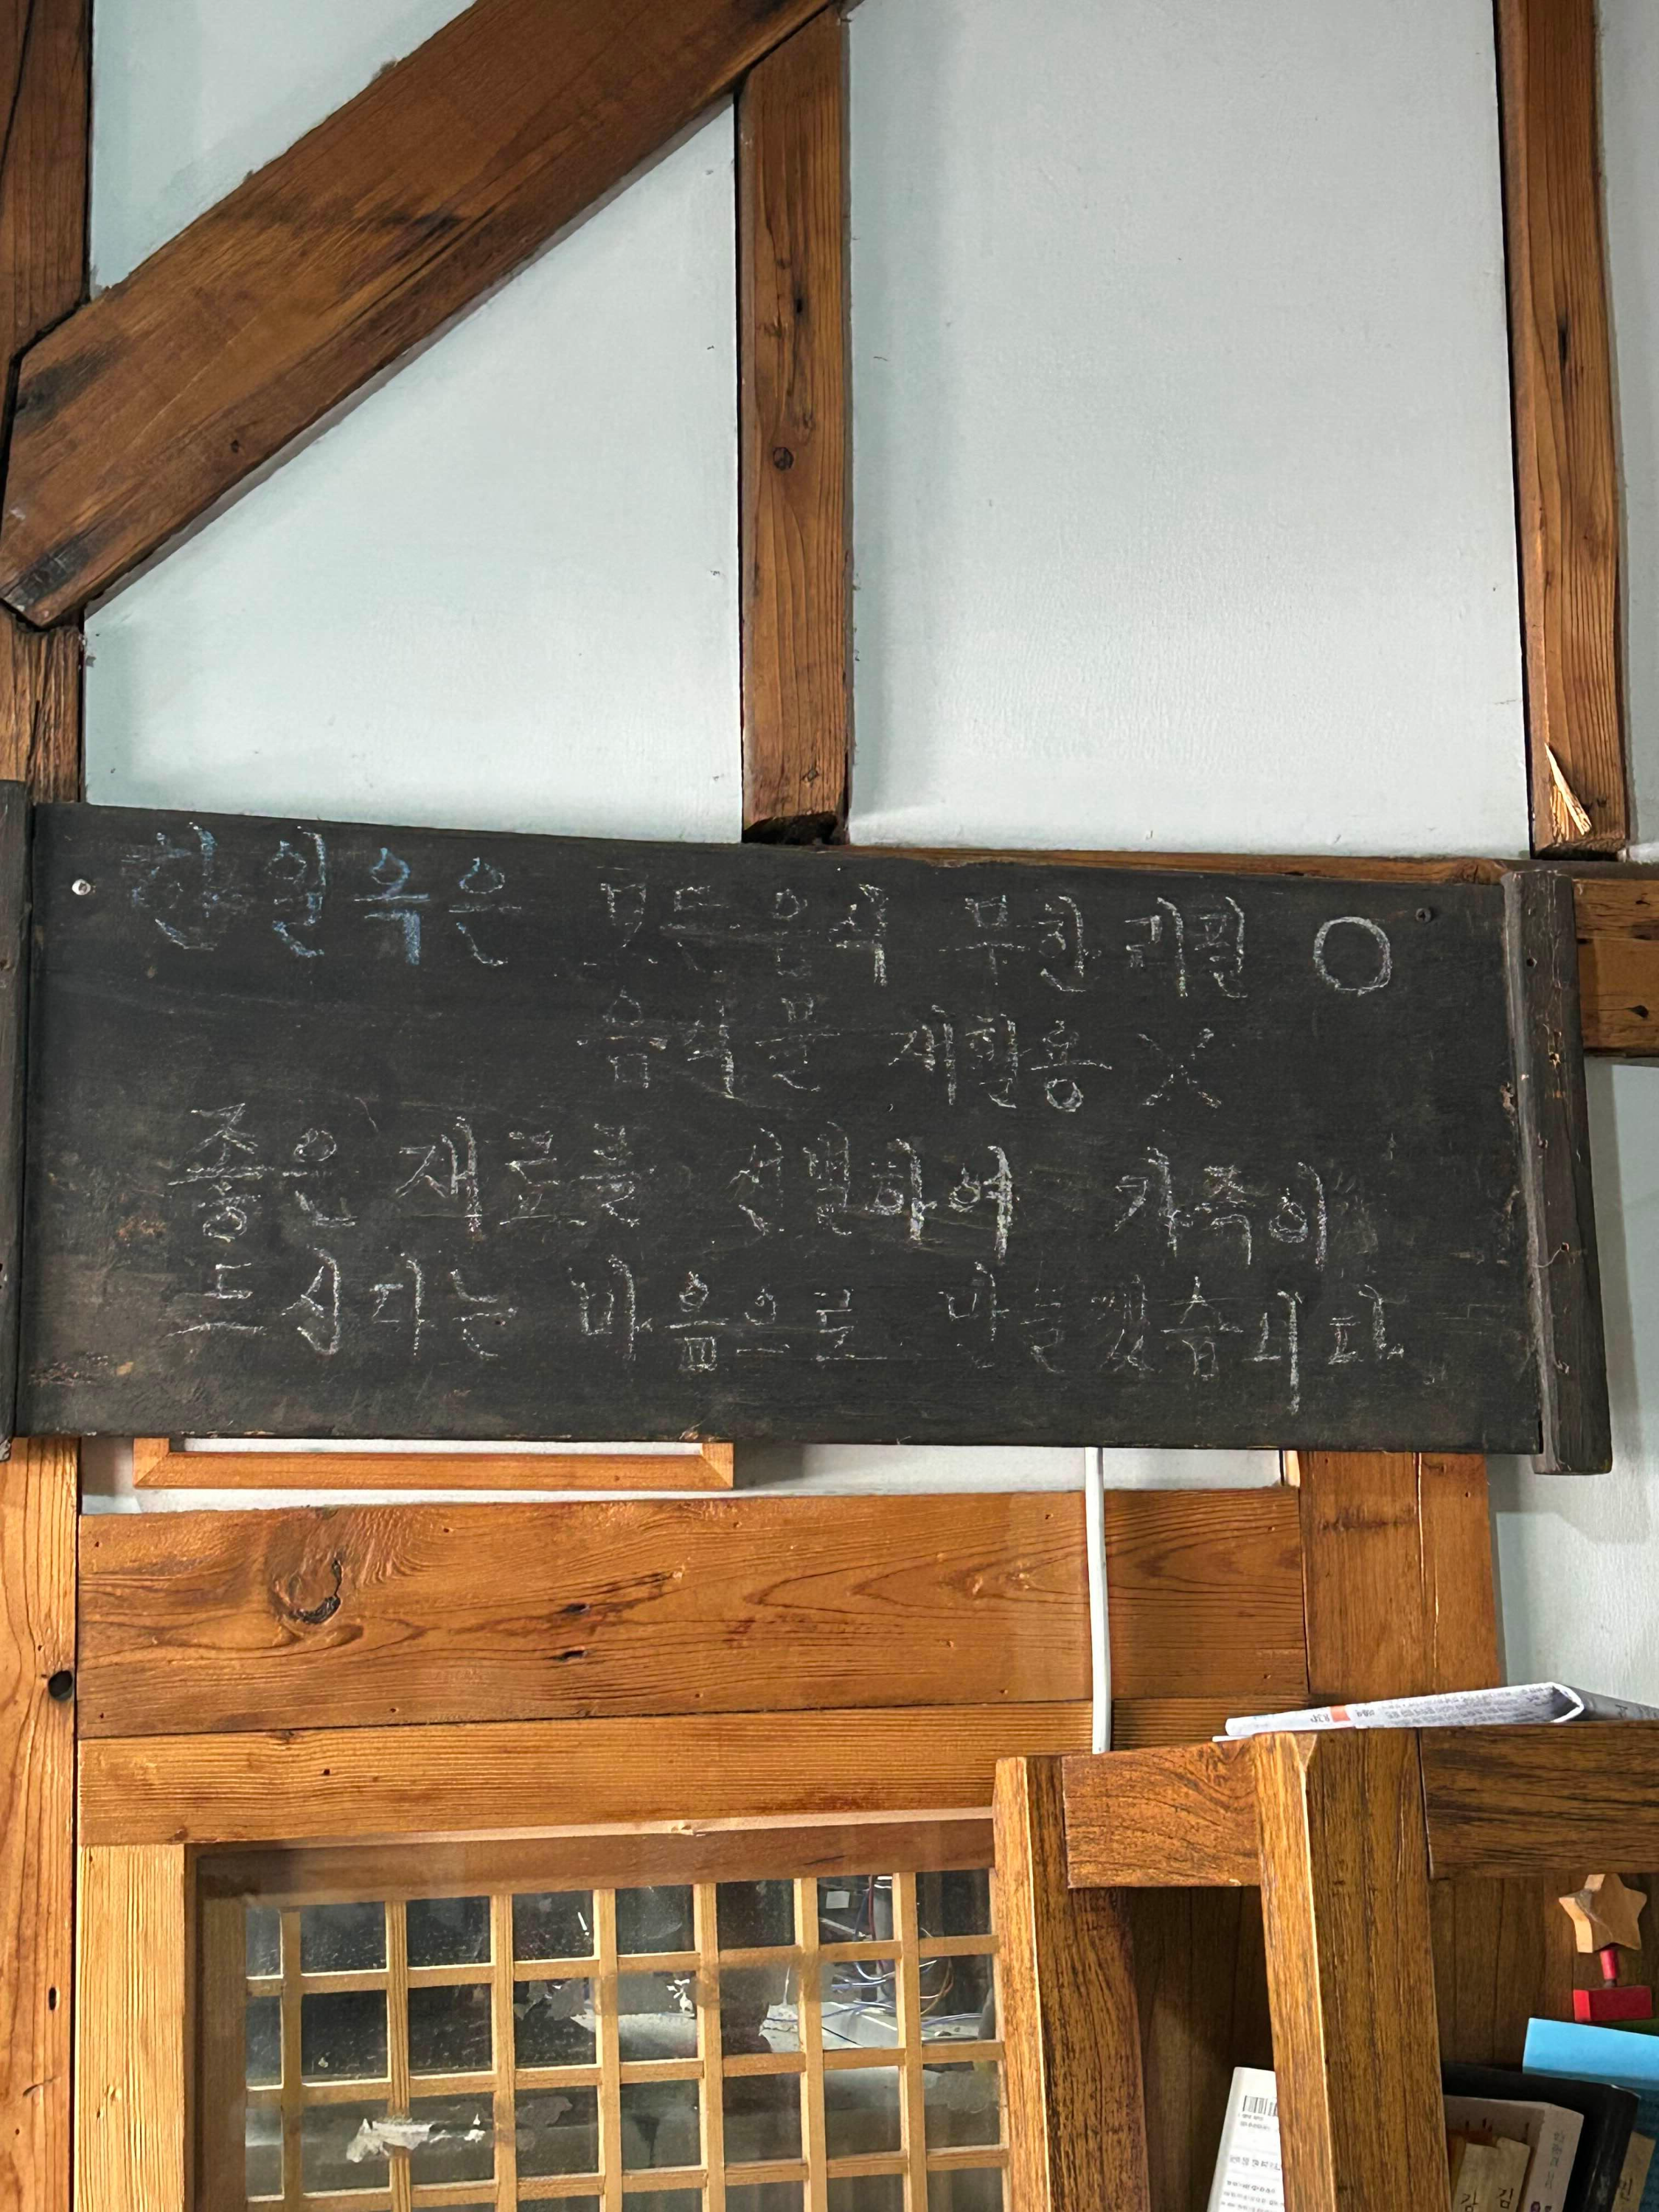 한일옥은 모든 음식 무한 리필 O
음식물 재활용 X
좋은 재료를 선별하여 가족이
드신다는 마음으로 만들겠습니다.